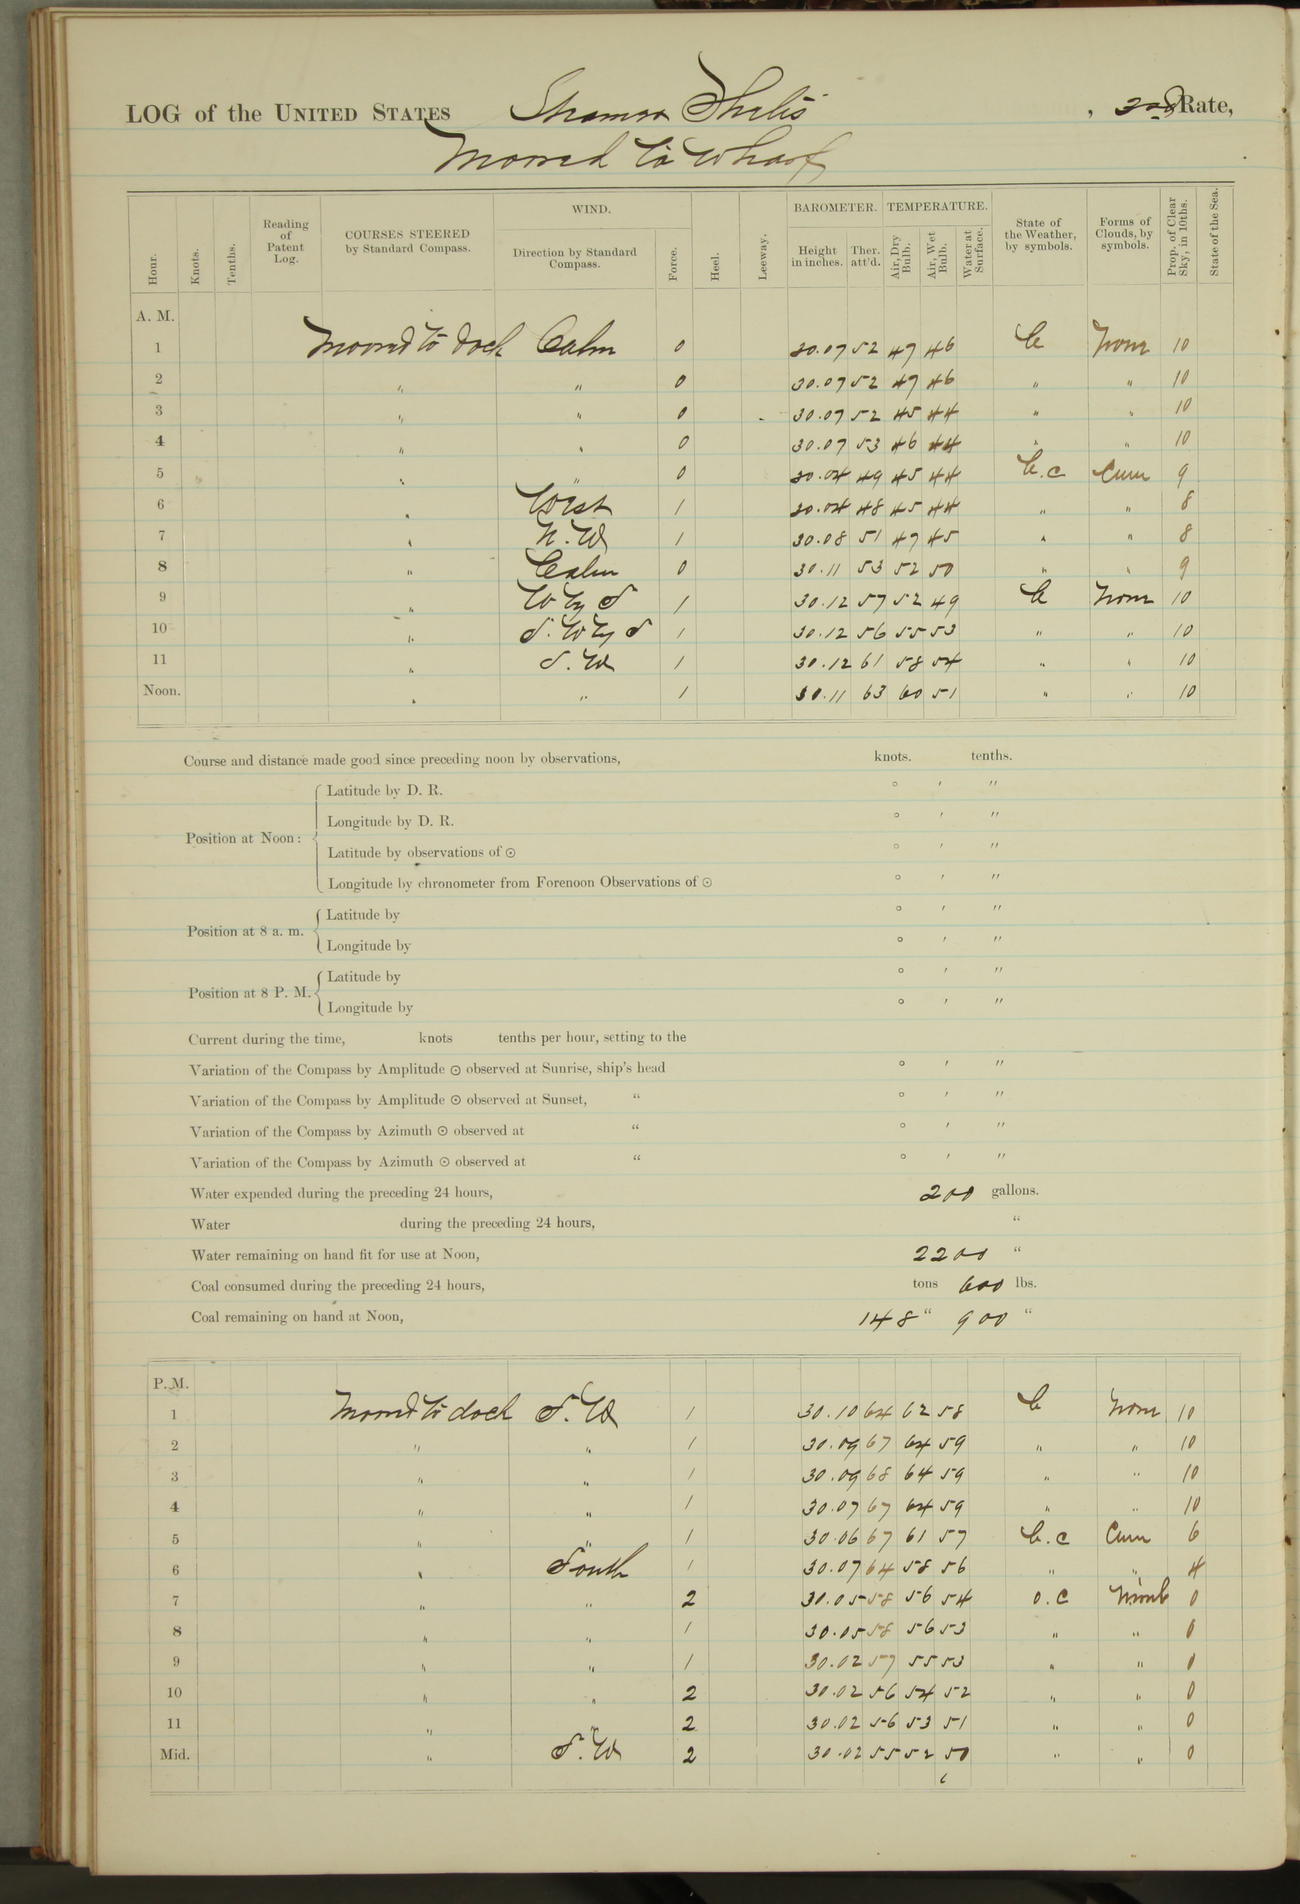 LOG of the UNITED STATES Steamer Thetis, 3rd Rate,
Moored to Wharf
Hour. Knots. Tenths. Reading of Patent Log. COURSES STEERED by Standard Compass. WIND. Direction by Standard Compass. Force. Heel. Leeway. BAROMETER. Height in inches. Ther. att'd. TEMPERATURE. Air, Dry Bulb. Air, Wet Bulb. Water at Surface. State of the Weather, by symbols. Forms of Clouds, by symbols. Prop. of Clear Sky, in 10ths. State of the Sea.
A. M.
1 Moored to dock Calm 0 30.07 52 47 46 b None 10
2 " " 0 30.07 52 47 46 " " 10
3 " " 0 30.07 52 45 44 " " 10
4 " " 0 30.07 53 46 44 " " 10
5 " " 0 30.04 49 45 44 b.c Cum 9
6 " West 1 30.04 48 45 44 " " 8
7 " N.W 1 30.08 51 47 45 " " 8
8 " Calm 0 30.11 53 52 50 " " 9
9 " W by S 1 30.12 57 52 49 b None 10
10 " S.W by S 1 30.12 56 55 53 " " 10
11 " S.W 1 30.12 61 58 54 " " 10
Noon. " " 1 30.11 63 60 51 " " 10
Course and distance made good since preceding noon by observations, knots. tenths.
Position at Noon: Latitude by D. R. ° ' "
Longitude by D. R. ° ' "
Latitude by observations of ☉ ° ' "
Longitude by chronometer from Forenoon Observations of ☉ ° ' "
Position at 8 a. m. Latitude by ° ' "
Longitude by ° ' "
Position at 8 P. M. Latitude by ° ' "
Longitude by ° ' "
Current during the time, knots tenths per hour, setting to the
Variation of the Compass by Amplitude ☉ observed at Sunrise, ship's head ° ' "
Variation of the Compass by Amplitude ☉ observed at Sunset, " ° ' "
Variation of the Compass by Azimuth ☉ observed at " ° ' "
Variation of the Compass by Azimuth ☉ observed at " ° ' "
Water expended during the preceding 24 hours, 200 gallons.
Water during the preceding 24 hours, "
Water remaining on hand fit for use at Noon, 2200 "
Coal consumed during the preceding 24 hours, tons 600 lbs.
Coal remaining on hand at Noon, 148 " 900 "
P. M.
1 Moored to dock S.W 1 30.10 64 62 58 b None 10
2 " " 1 30.09 67 64 59 " " 10
3 " " 1 30.09 68 64 59 " " 10
4 " " 1 30.07 67 64 59 " " 10
5 " " 1 30.06 67 61 57 b.c Cum 6
6 " South 1 30.07 64 58 56 " " 4
7 " " 2 30.05 58 56 54 o.c Nimb 0
8 " " 1 30.05 58 56 53 " " 0
9 " " 1 30.02 57 55 53 " " 0
10 " " 2 30.02 56 54 52 " " 0
11 " " 2 30.02 56 53 51 " " 0
Mid. " S.W 2 30.02 55 52 50 " " 0